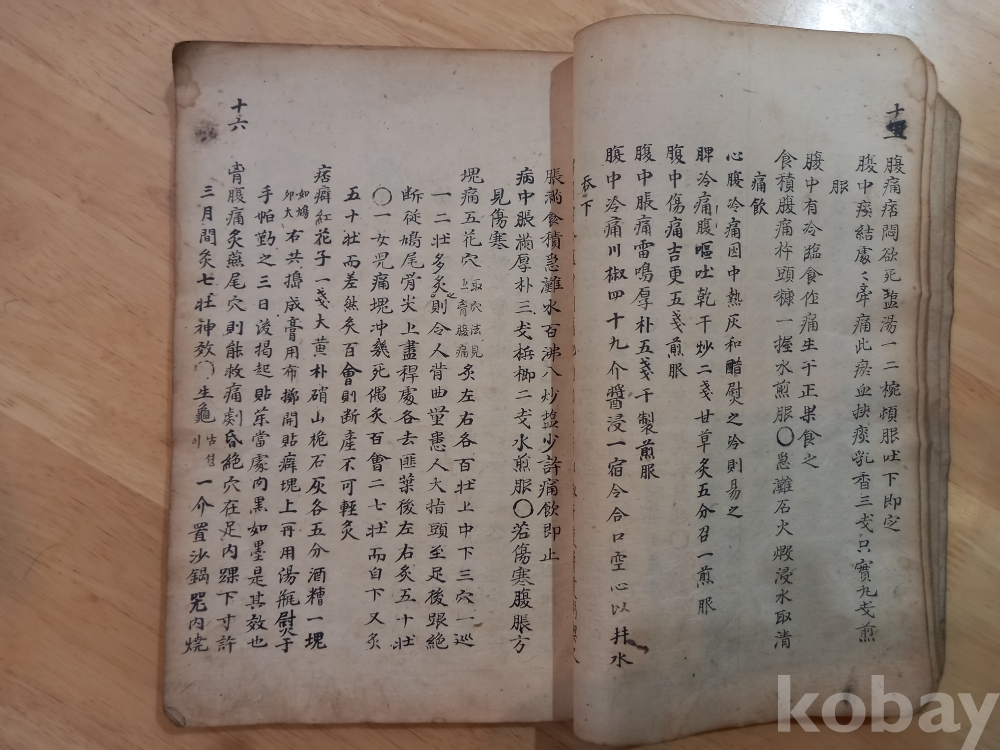 腹痛痞悶欲死盐湯一二椀頓服吐下即定
腹中痰結處〻牽痛此瘀血挾痰乳香三戔只實九戔煎
服
腹中有冷臨食作痛生干正果食之
食積腹痛杵頭糠一握水煎服〇急灘石火煅浸水取清
痛飲
心腹冷痛因中熱灰和醋熨之冷則易之
脾冷痛腹嘔吐乾干炒二戔甘草炙五分召一煎服
腹中傷痛吉更五戔煎服
腹中脹痛雷鳴厚朴五戔干製煎服
腹中冷痛川椒四十九介醬浸一宿令合口空心以井水
呑下
十
脹滿食積急灘水百沸入炒盐少許痛飲即止
病中脹滿厚朴三戔梹榔二戔水煎服〇若傷寒腹脹方
見傷寒
塊痛五花穴取穴法見上胷腹痛炙左右各百壯上中下三穴一巡
一二壯多炙則令人背曲量患人大指頭至足後跟絶
断從鳩尾骨尖上盡稈處各去匪葉後左右炙五十壯
〇一女児痛塊冲幾死偶炙百會二七壯而自下又炙
五十壯而差然矣百會則断產不可輕炙
痞癖紅花子一戔大黄朴硝山梔石灰各五分酒糟一塊
如鳩卵大右共搗成膏用布擲開貼癖塊上再用湯瓶熨于
手帕勤之三日後揭起貼茱當處向黑如墨是其效也
胷腹痛炙燕尾穴則能救痛劇昏絶穴在足内踝下寸許
三月間炙七壯神效〇生龜一介置沙鍋兕内燒
十六
kobay